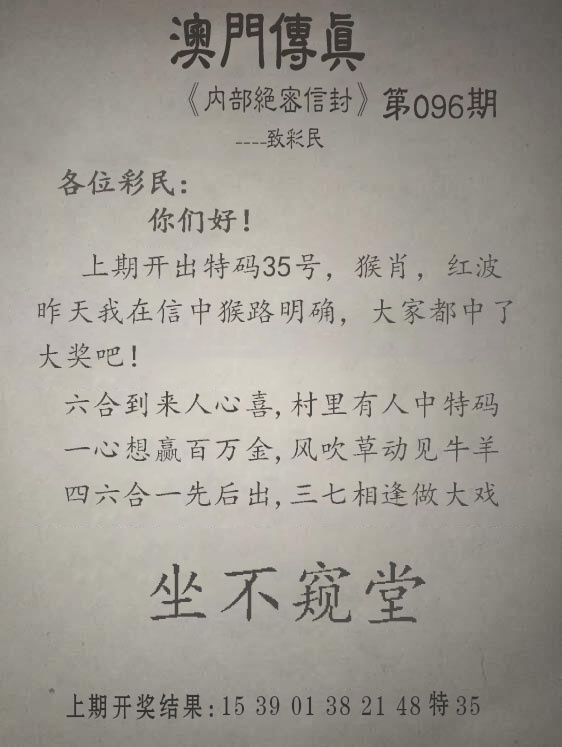 澳門傳真
《内部絕密信封》第096期
----致彩民
各位彩民：
你们好！
上期开出特码35号，猴肖，红波
昨天我在信中猴路明确，大家都中了
大奖吧！
六合到来人心喜，村里有人中特码
一心想赢百万金，风吹草动见牛羊
四六合一先后出，三七相逢做大戏
坐不窥堂
上期开奖结果：15 39 01 38 21 48 特 35